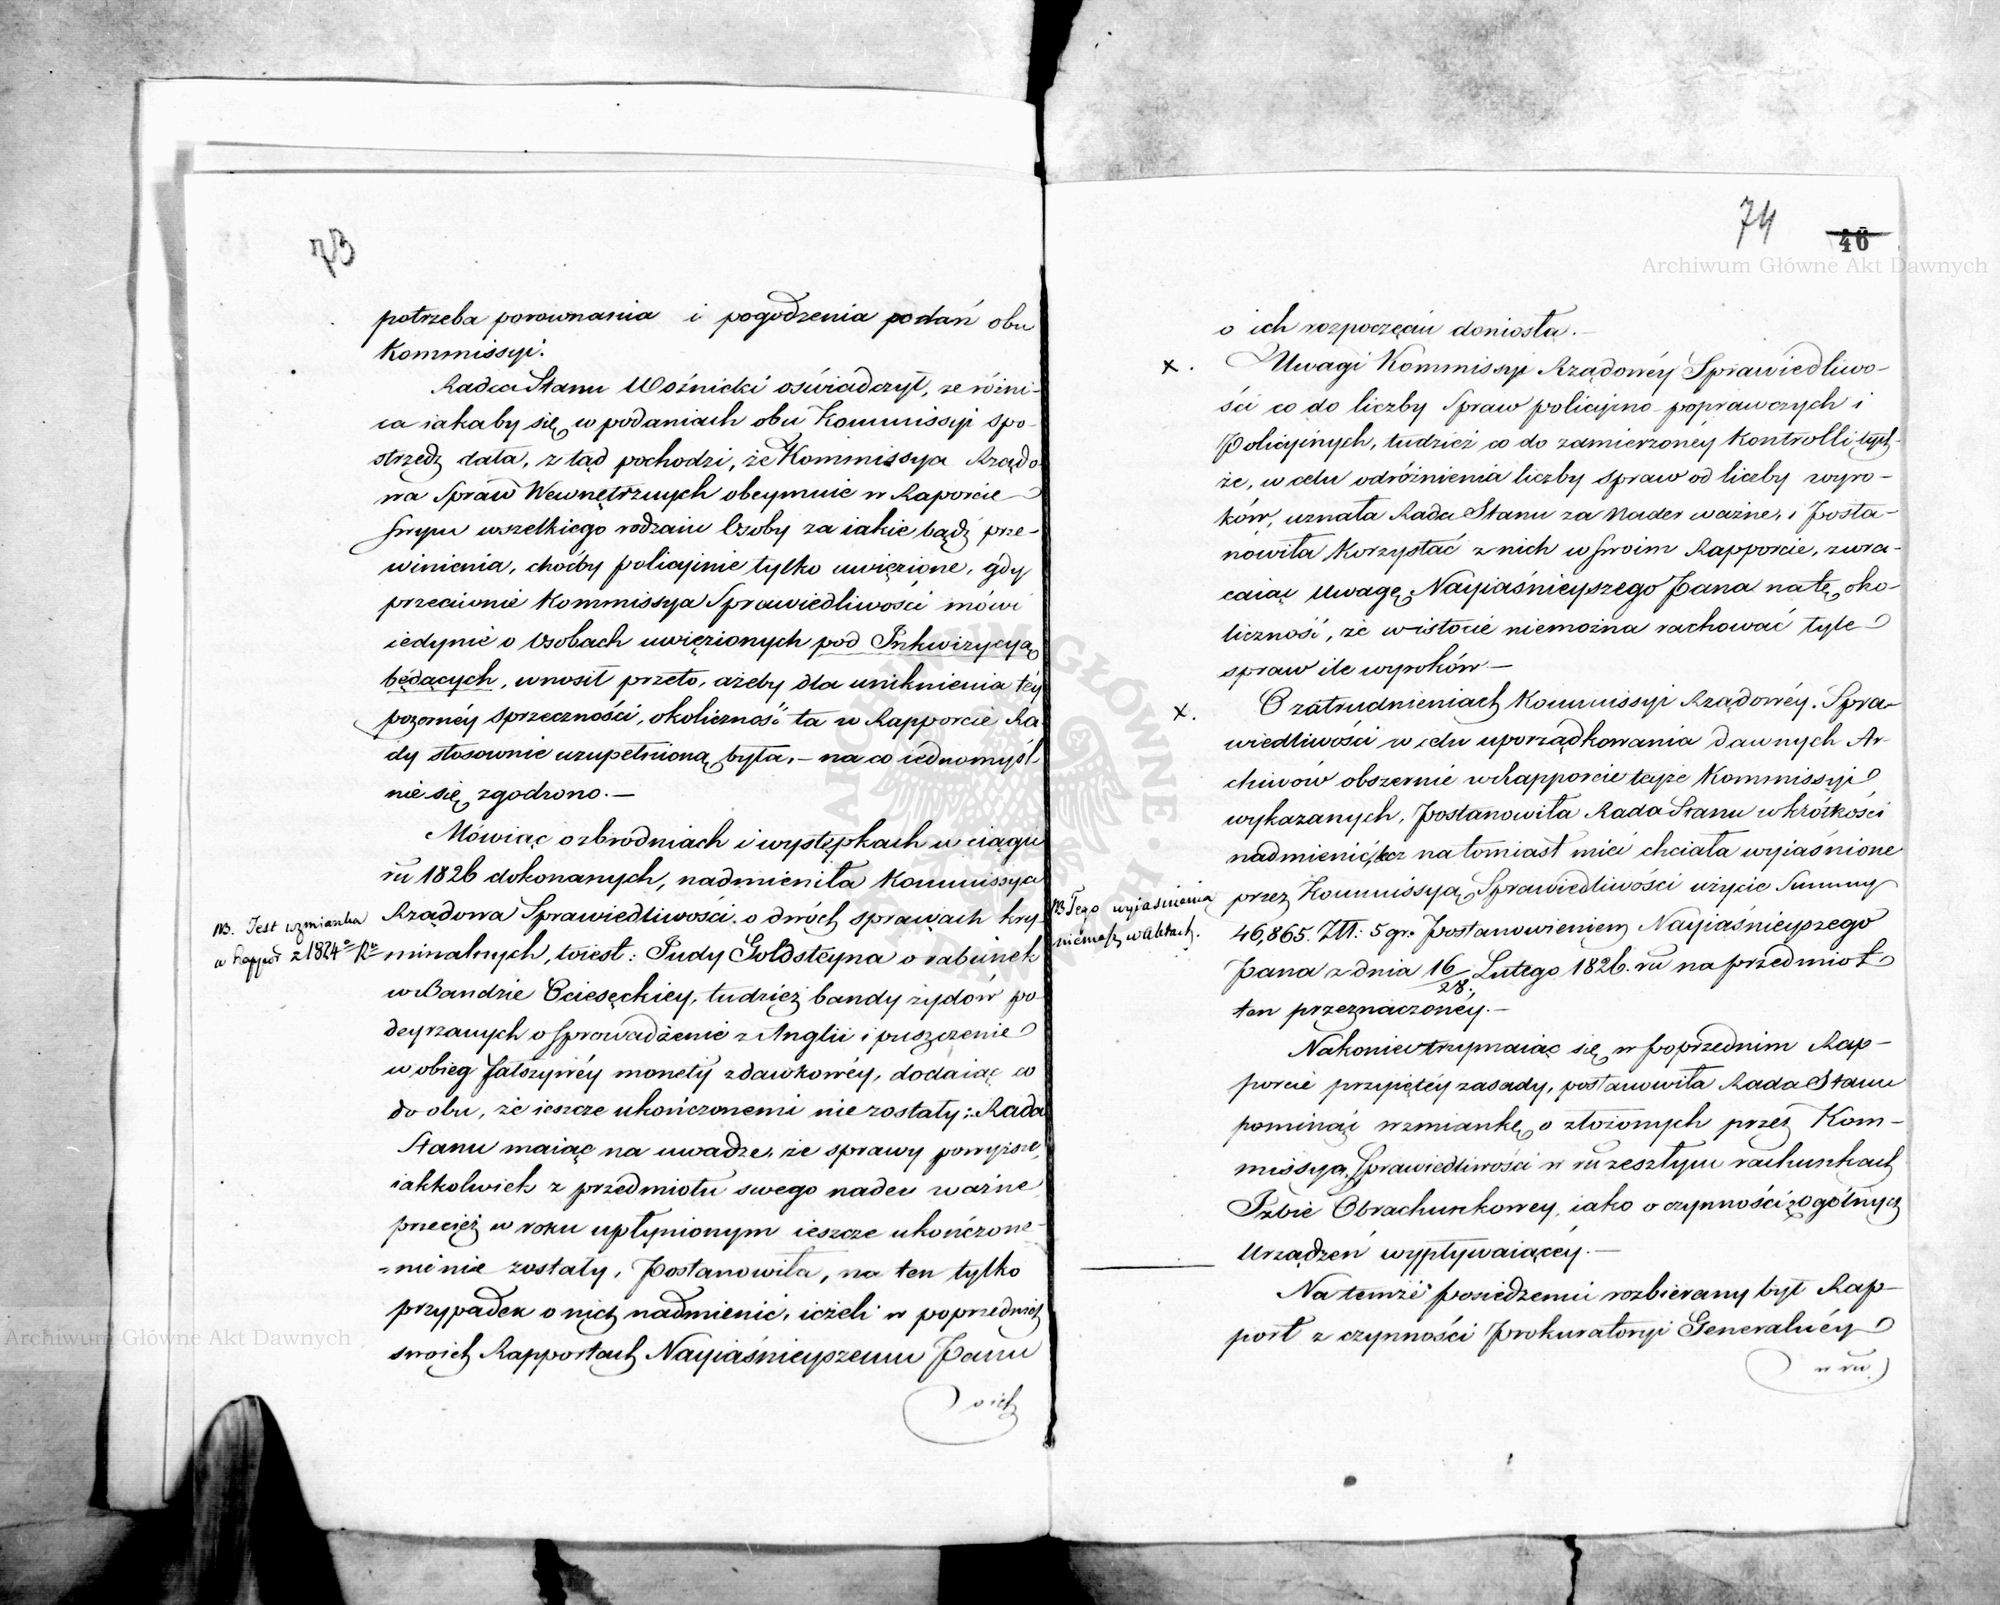 73
potrzeba porownania i pogodzenia podań obu
Kommissyi.
Radca Stanu Woźnicki oświadczył, ze różni-
ca iakaby się w podaniach obu Kommissyi spo-
strzedz dała, z tąd pochodzi, że Kommissya Rządo
wa Spraw Wewnętrznych obeymuie w Raporcie
swym wszelkiego rodzaiu Osoby za iakie bądź prze-
winienia, choćby policyinie tylko uwięzione, gdy
przeciwnie Kommissya Sprawiedliwości mówi
iedynie o Osobach uwięzionych pod Inkwizycyą
będących, wnosił przeto, ażeby dla uniknienia téy
pozornéy sprzeczności, okoliczność ta w Rapporcie Ra
dy stosownie uzupełnioną była, — na co iednomyśl
nie się zgodzono. —
Mówiąc o zbrodniach i występkach w ciągu
ru 1826 dokonanych, nadmieniła Kommissya
Rządowa Sprawiedliwości o dwóch sprawach kry-
minalnych, toiest: Judy Goldsteyna o rabunek
w Bandzie Ociesęckiey, tudzież bandy żydów po-
deyrzanych o sprowadzenie z Anglii i puszczenie
w obieg fałszywéy monety zdawkowéy, dodaiąc co
do obu, że ieszcze ukończonemi nie zostały: Rada
Stanu maiąc na uwadze, że sprawy powyższe,
iakkolwiek z przedmiotu swego nader ważne
przecież w roku upłynionym ieszcze ukończone-
=mi nie zostały, Postanowiła, na ten tylko
przypadek o nich nadmienić, ieżeli w poprzednich
swoich Rapportach Nayiaśnieyszemu Panu
o ich
NB. Jest wzmianka
w Rapport z 1824º Ru
74
40
o ich rozpoczęciu doniosła. —
x. Uwagi Kommissyi Rządowéy Sprawiedliwo-
ści co do liczby Spraw policyino-poprawczych i
Policyinych, tudzież co do zamierzonéy Kontrolli tych-
że, w celu odróżnienia liczby spraw od liczby wyro-
ków, uznała Rada Stanu za nader ważne, i Posta-
nowiła korzystać z nich w swoim Rapporcie, zwra-
caiąc Uwagę Nayiaśnieyszego Pana na tę oko-
liczność, że w istocie niemożna rachować tyle
spraw ile wyroków —
x. O zatrudnieniach Kommissyi Rządowéy Spra-
wiedliwości w celu uporządkowania dawnych Ar-
chiwów obszernie w Rapporcie teyże Kommissyi
wykazanych, Postanowiła Rada Stanu w krótkości
nadmienić, lecz natomiast mieć chciała wyiaśnione
przez Kommissyą Sprawiedliwości użycie Summy
46,865. Złł: 5 gr. Postanowieniem Nayiaśnieyszego
Pana z dnia 16/28. Lutego 1826. ru na przedmiot
ten przeznaczonéy. —
Nakoniec trzymaiąc się w poprzednim Rap-
porcie przyiętéy zasady, postanowiła Rada Stanu
pominąć wzmiankę o złożonych przez Kom-
missyą Sprawiedliwości w ru zeszłym rachunkach
Izbie Obrachunkowey, iako o czynności z Ogólnych
Urządzeń wypływaiącéy. —
Na temże posiedzeniu rozbierany był Rap-
port z czynności Prokuratoryi Generalnéy
w ru.
NB Tego wyjaśnienia
niemasz w aktach.
Archiwum Główne Akt Dawnych
Archiwum Główne Akt Dawnych